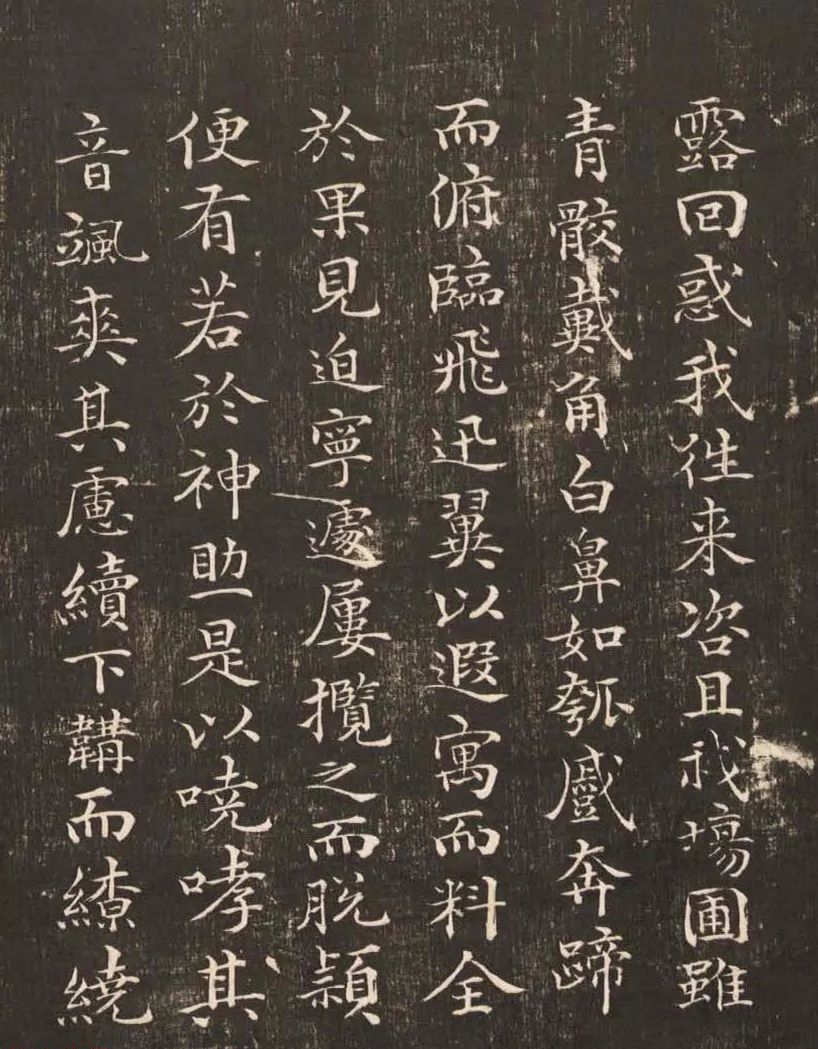 露回惑我往来咨且我場圃雖
青骹戴角白鼻如瓠戲奔蹄
而俯臨飛迅翼以遐寓而料全
於果見迫寧遽屢攬之而脱穎
便有若於神助是以哓哮其
音颯爽其慮續下韝而繚繞